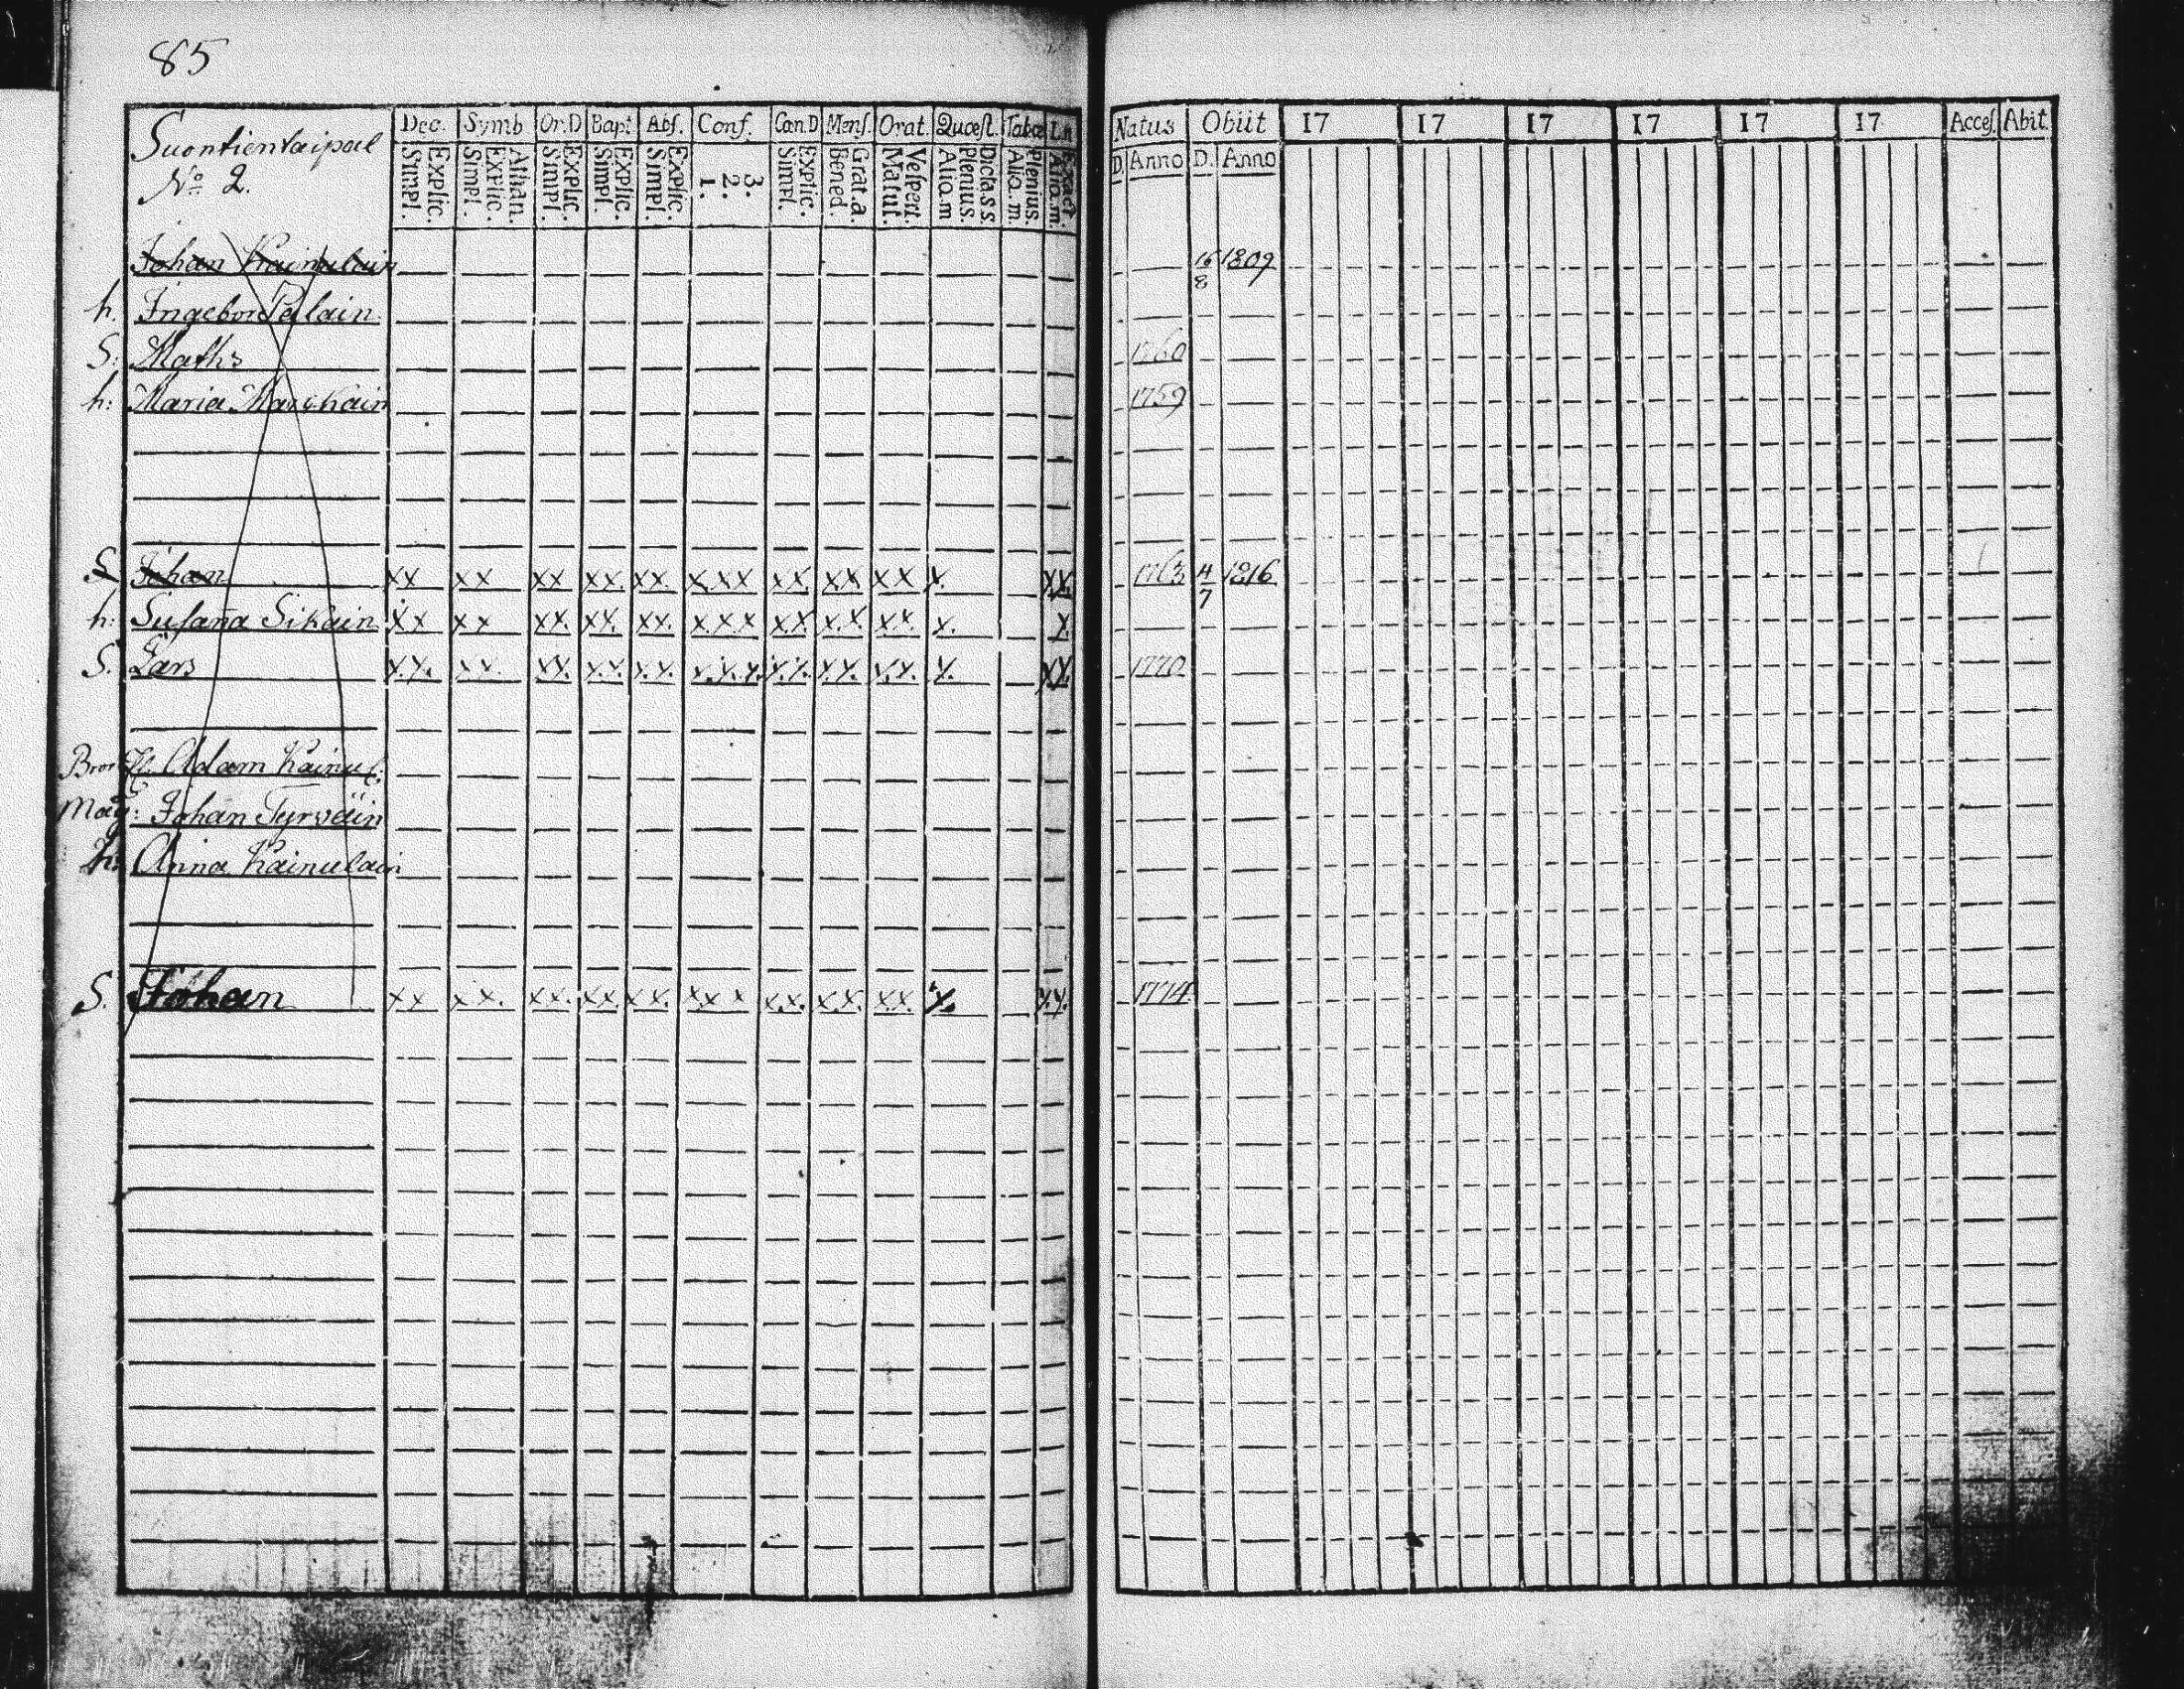 85
Suontientaipal
No 2.
Dec. Symb Or.D Bapt. Abs. Conf. Can.D Mens. Orat. Quæst. Tabœ
Explic. Simpl. Athan. Explic. Simpl. Explic. Simpl. Explic. Simpl. Explic. Simpl. 3. 2. 1. Explic. Simpl. Grat.a. Bened. Vespert. Matut. Dicta.s.s Plenius. Alio.m Plenius. Alio.m. Exact. Alio.m.
Natus Obiit 17 17 17 17 17 17 Acces. Abit.
D. Anno D. Anno
Johan Kainulain 16/8 1809
h. Ingebor Pelain
S: Maths 1760
h: Maria 1759
S Johan xx xx xx xx. xx. x.xx xx. xx xx x. xx. 1763 4/7 1816
h: Susaña Sikain xx xx xx. xx. xx. x.x.x x.x x.x xx. x. x.
S. Lars x.x. xx. xx. x.x. x.x x.x.x. x.x. xx. x.x. x. xx. 1770
Bror Adam Kainul:
Mag: Johan Tyrväin
h: Anna Kainulain
S. Johan xx xx. xx. xx. xx. xxx x.x. x.x. xx. x. x.x. 1774